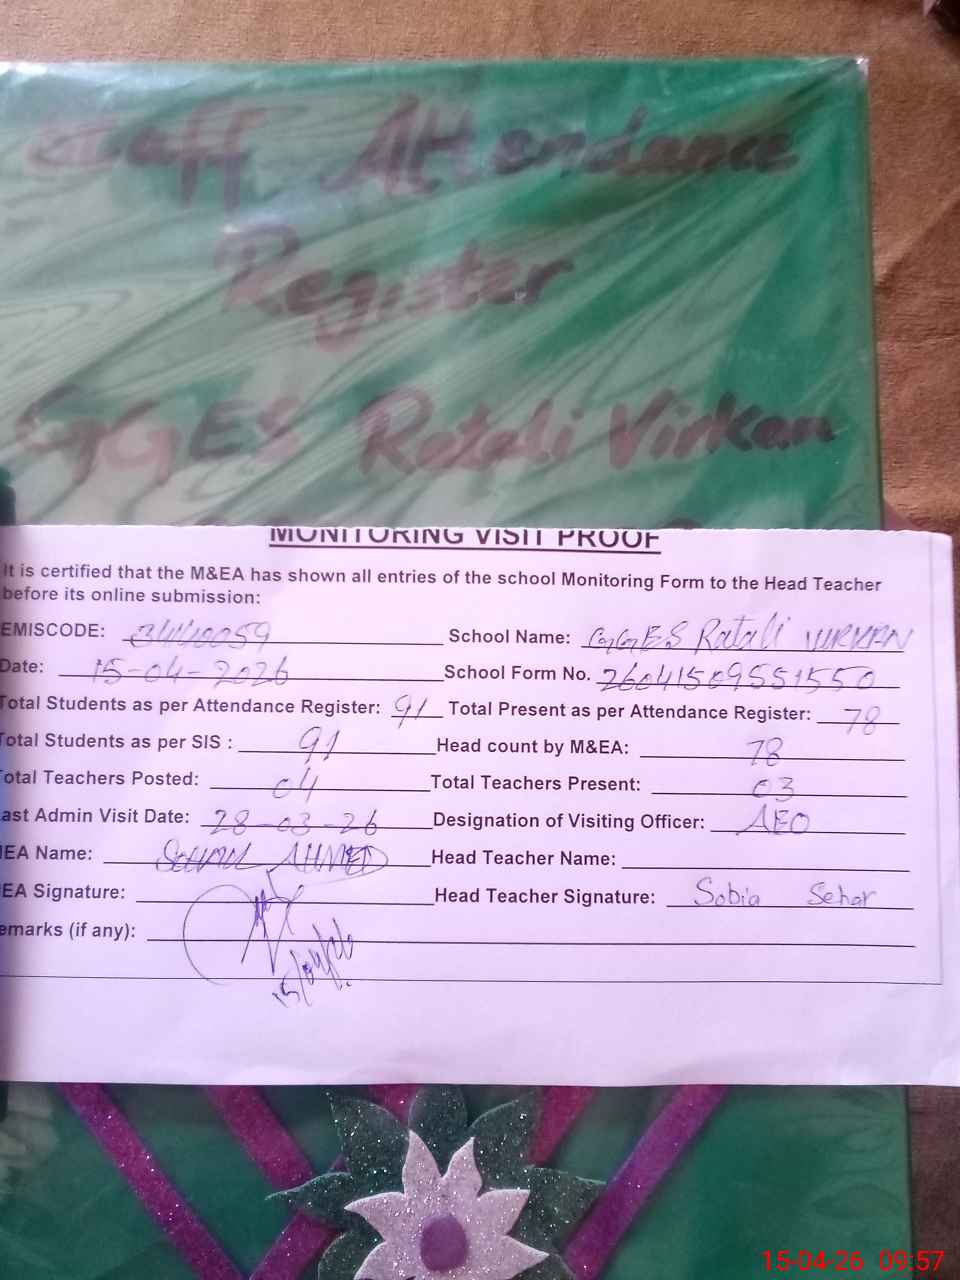 Staff Attendance
Register
GGES Ratali Virkan
MONITORING VISIT PROOF
It is certified that the M&EA has shown all entries of the school Monitoring Form to the Head Teacher
before its online submission:
EMISCODE: School Name: GGES Ratali VIRKAN
Date: 15-04-2026 School Form No. 26041509551550
Total Students as per Attendance Register: 91 Total Present as per Attendance Register: 78
Total Students as per SIS : 91 Head count by M&EA: 78
Total Teachers Posted: 04 Total Teachers Present: 03
ast Admin Visit Date: 28-03-26 Designation of Visiting Officer: AEO
EA Name: AHMED Head Teacher Name:
EA Signature: Head Teacher Signature: Sobia Sehar
emarks (if any):
15/04/26
15-04-26 09:57